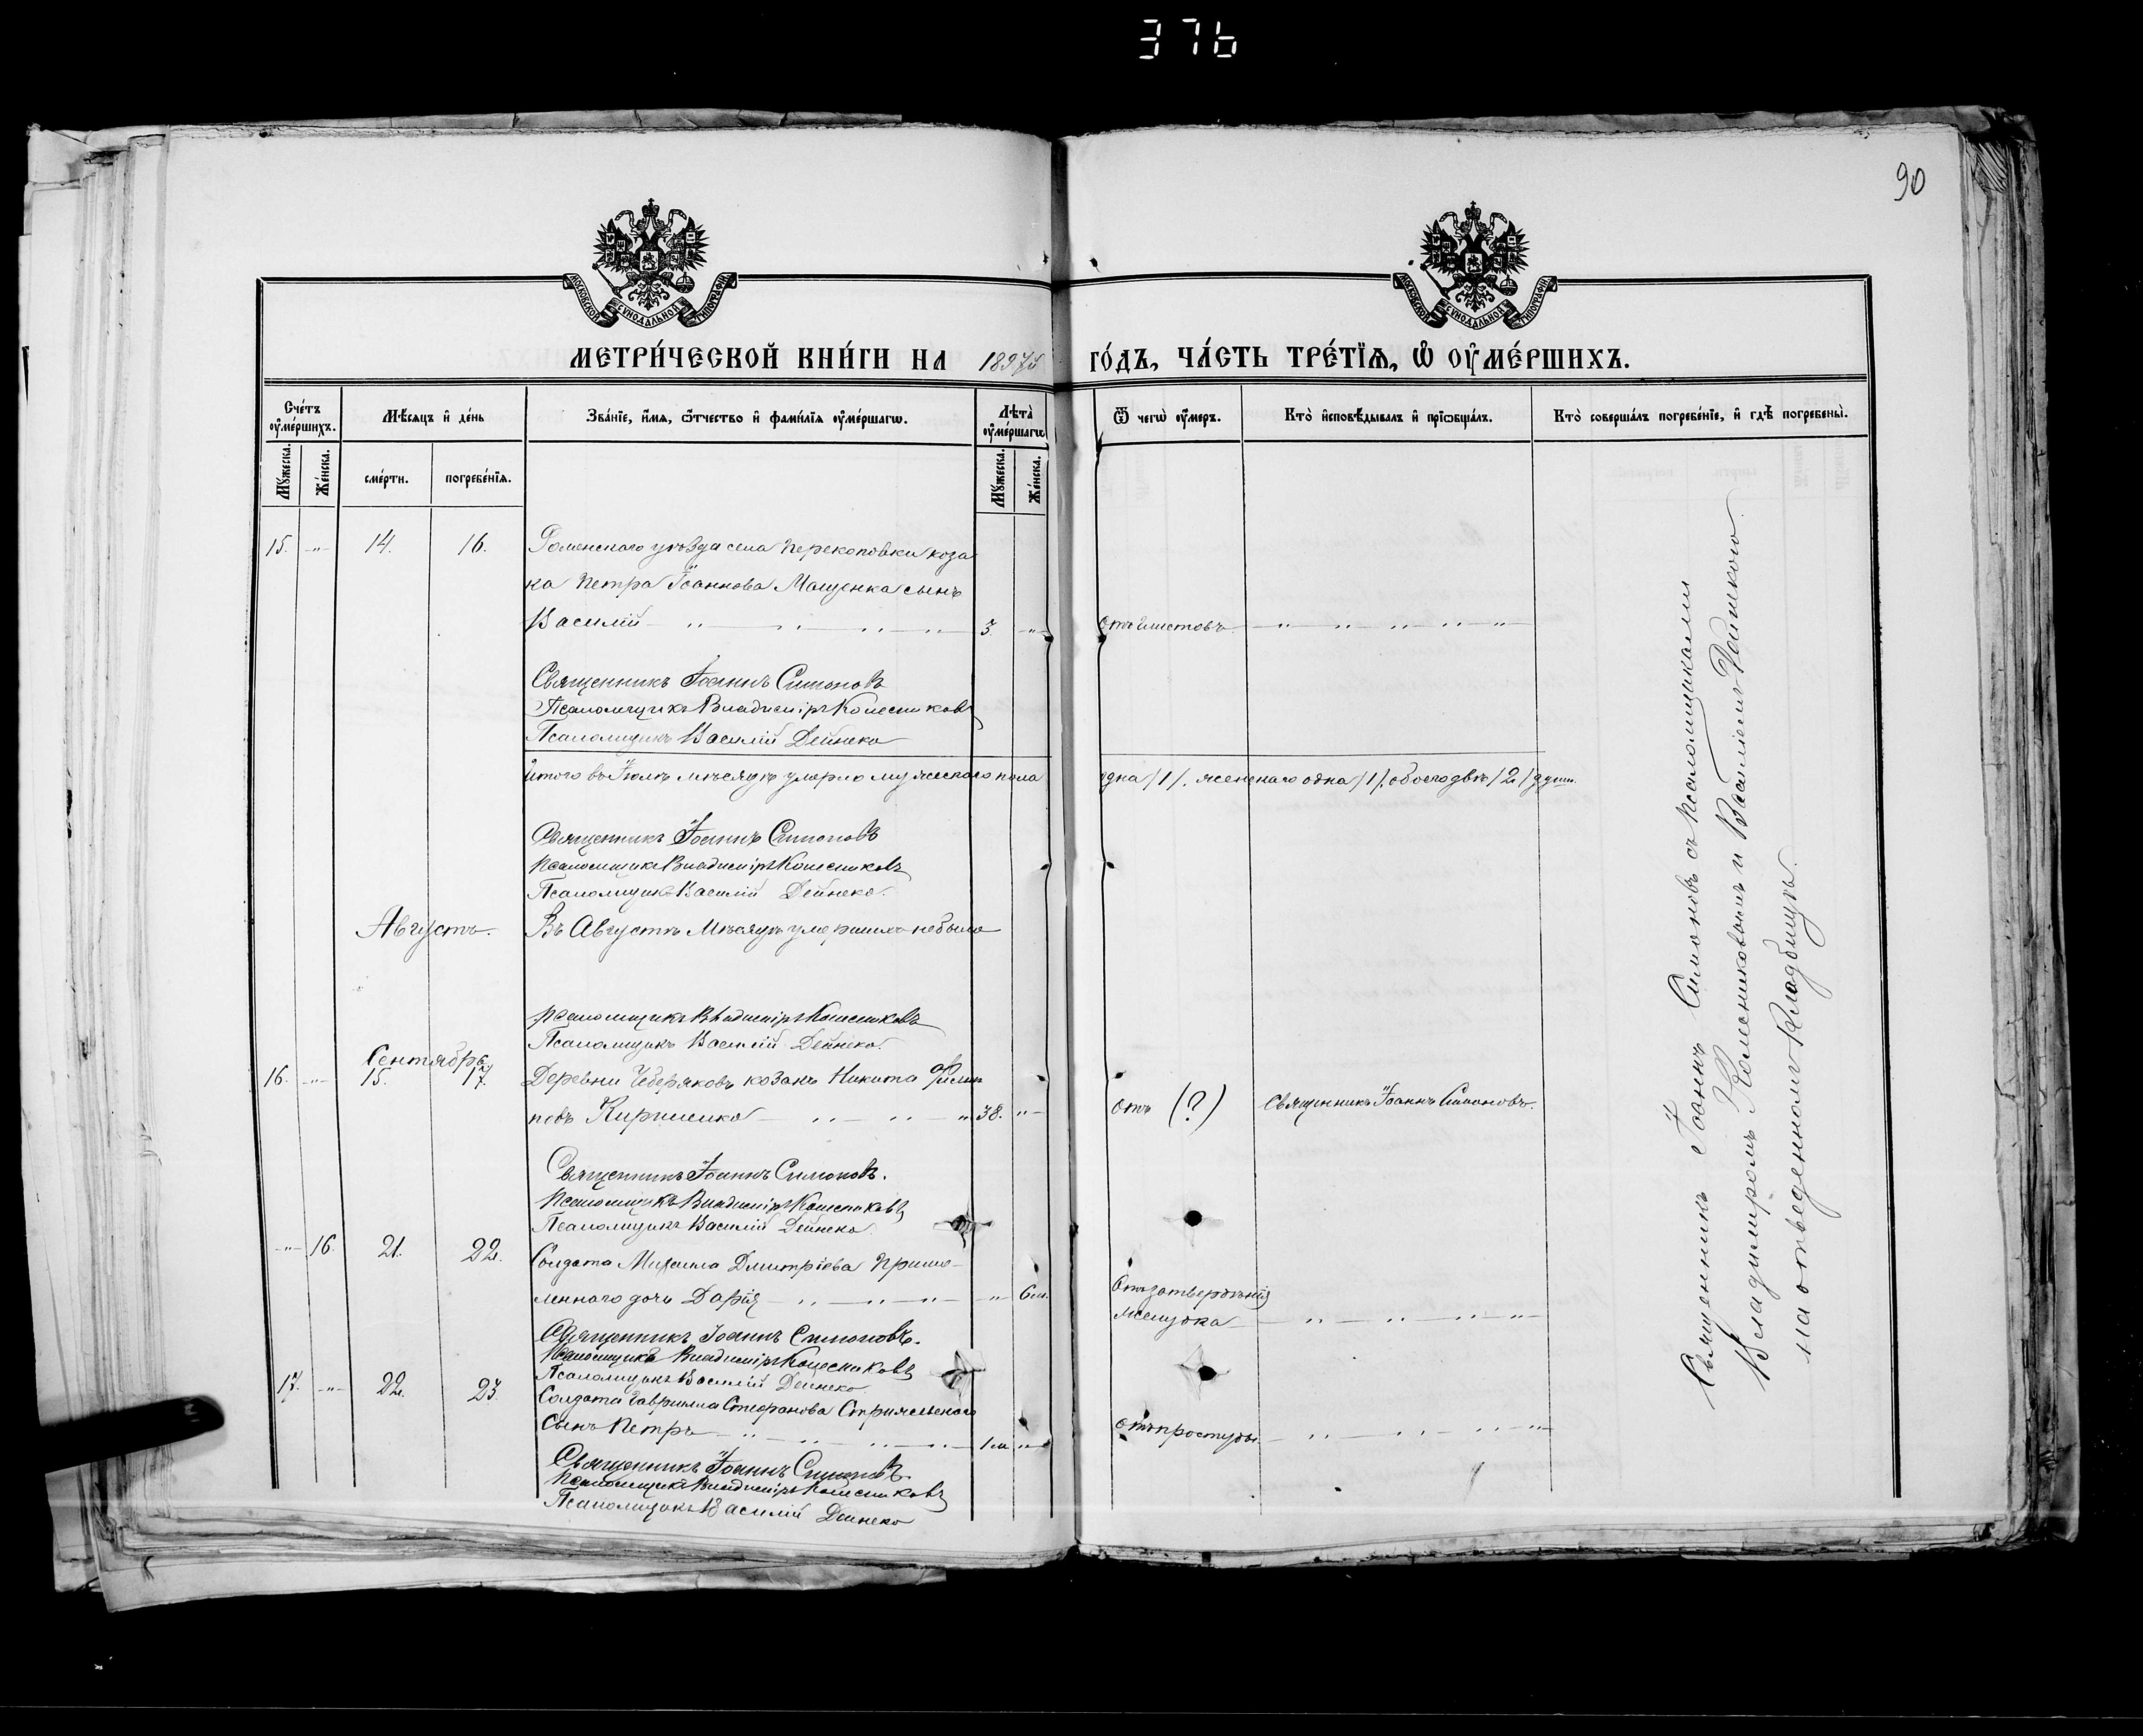 376
90
МОСКОВСКОЙ СѴНОДАЛЬНОЙ ТИПОГРАФІИ
МОСКОВСКОЙ СѴНОДАЛЬНОЙ ТИПОГРАФІИ
МЕТРИ́ЧЕСКОЙ КНИ́ГИ НА 1897й ГО́ДЪ, ЧА́СТЬ ТРЕ́ТЇѦ, Ѡ҆ ОУ҆МЕ́РШИХЪ.
Сче́тъ оу҆ме́ршихъ.
Мѣ́сяцъ и҆ де́нь
Зва́нїе, и҆́мѧ, ѻ҆́тчество и҆ фами́лїѧ оу҆ме́ршагѡ.
Лѣ́та оу҆ме́ршагѡ
Ѿ чегѡ̀ оу҆́меръ.
Кто̀ и҆сповѣ́дывалъ и҆ прїѡбща́лъ.
Кто̀ соверша́лъ погребе́нїе, и҆ гдѣ̀ погребены̀.
Мꙋ́жеска.
Же́нска.
сме́рти.
погребе́нїѧ.
Мꙋ́жеска.
Же́нска.
15. -„- 14. 16. Роменскаго уѣзда села Перекоповки коза
ка Петра Іоаннова Мащенка сынъ
Василій — „ — „ — „ — „ 3. -„- отъ глистовъ — „ — „ — „ — „ — „
Священникъ Іоаннъ Симоновъ
Псаломщикъ Владиміръ Колесниковъ
Псаломщикъ Василій Дейнеко
Итого въ Іюлѣ мѣсяцѣ умерло мужескаго пола одна /1/. женскаго одна /1/, обоего двѣ /2/ души.
Священникъ Іоаннъ Симоновъ
Псаломщикъ Владиміръ Колесниковъ
Псаломщикъ Василій Дейнеко.
Августъ. Въ Августѣ мѣсяцѣ умершихъ небыло
Псаломщикъ Владиміръ Колесниковъ
Псаломщикъ Василій Дейнеко.
Сентябрь
16. -„- 15. 17. Деревни Чеберяковъ козакъ Никита Филип
повъ Кириленко — „ — „ — „ 38. „- отъ (?) Священникъ Іоаннъ Симоновъ.
Священникъ Іоаннъ Симоновъ.
Псаломщикъ Владиміръ Колесниковъ
Псаломщикъ Василій Дейнеко
-„- 16. 21. 22. Солдата Михаила Дмитріева
леннаго дочь Дарія — „ — „ — „ -„- 6 м. Отъ затвердѣнія
желудка — „ — „ — „ — „
Священникъ Іоаннъ Симоновъ.
Псаломщикъ Владиміръ Колесниковъ
Псаломщикъ Василій Дейнеко
17. -„- 22. 23. Солдата Гавриила Стефанова
сынъ Петръ — „ — „ — „ — „ 1 м „- отъ простуды — „ — „ — „ — „
Священникъ Іоаннъ Симоновъ.
Псаломщикъ Владиміръ Колесниковъ
Псаломщикъ Василій Дейнеко
Священникъ Іоаннъ Симоновъ съ псаломщиками
Владиміромъ Колесниковымъ и Василіемъ
на отведенномъ кладбищѣ.